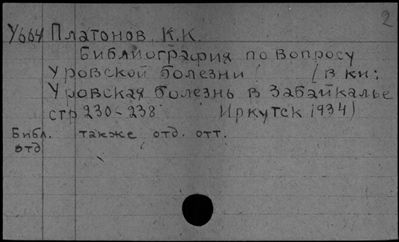 2
У664 Платонов К.К.
Библиография по вопросу
Уровской болезни (в кн:
Уровская болезнь в Забайкалье
стр 230-238 Иркутск 1934)
Библ. также отд. отт.
отд